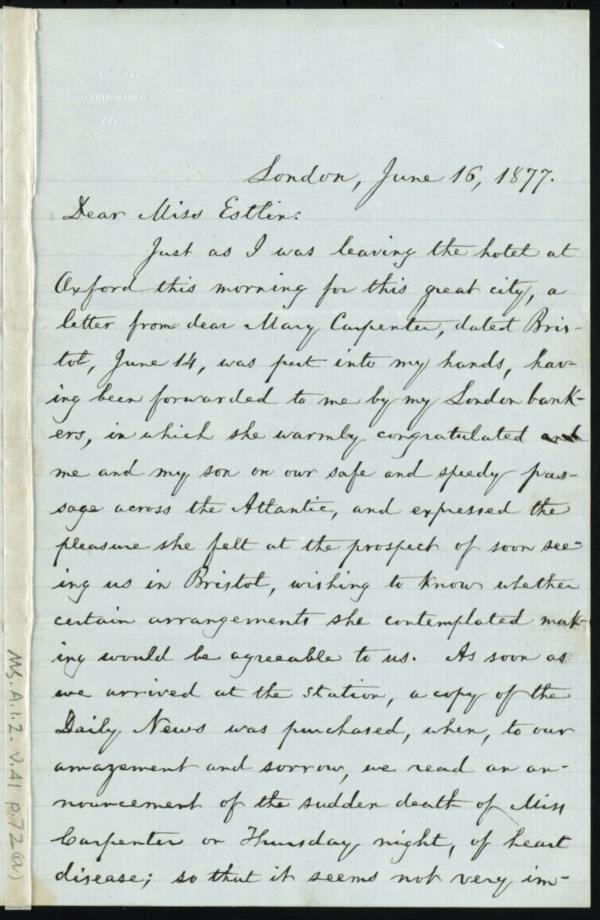 London, June 16, 1877.
Dear Miss Estlin:
Just as I was leaving the hotel at
Oxford this morning for this great city, a
letter from dear Mary Carpenter, dated Bris-
tol, June 14, was put into my hands, hav-
ing been forwarded to me by my London bank-
ers, in which she warmly congratulated and
me and my son on our safe and speedy pas-
sage across the Atlantic, and expressed the
pleasure she felt at the prospect of soon see-
ing us in Bristol, wishing to know whether
certain arrangements she contemplated mak-
ing would be agreeable to us. As soon as
we arrived at the station, a copy of the
Daily News was purchased, when, to our
amazement and sorrow, we read an an-
nouncement of the sudden death of Miss
Carpenter on Thursday night, of heart
disease; so that it seems not very im-
Ms. A.1.2. V.41 p.72(a)